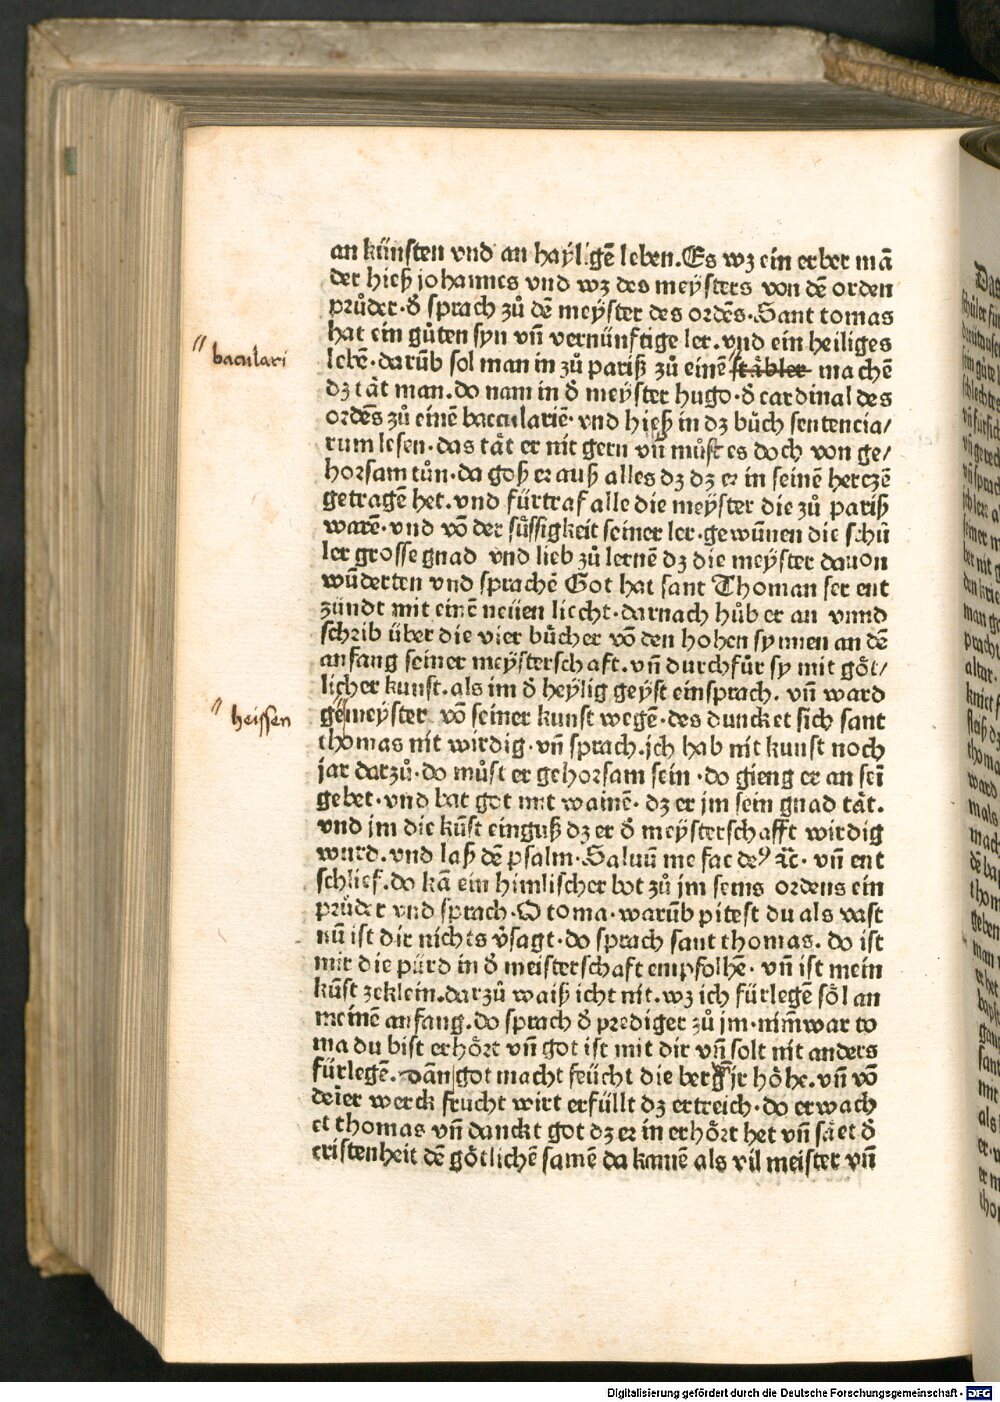 an künsten vnd an haÿligē leben. Es wʒ ein erber mā
der hieß johannes vnd wʒ des meÿsters von dē orden
průder· ð sprach zů dē meÿster des ordēs· Sant tomas
hat ein gůten syn vn̄ vernünftige ler. vnd ein heiliges
lebē· darūb sol man in zů pariß zů einē stâbler machē
baculari
dʒ tåt man. do nam in ð meÿster hugo· ð cardinal des
ordēs zů einē bacculariē· vnd hieß in dʒ bůch sentencia/
rum lesen· das tåt er nit gern vn̄ můst es doch von ge/
horsam tůn· da goß er auß alles dʒ dʒ er in seinē herczē
getragē het. vnd fürtraf alle die meÿster die zů pariß
warē· vnd vō der sůssigkeit seiner ler· gewūnen die schů
ler grosse gnad vnd lieb zů lernē dʒ die meÿster dauon
wūderten vnd sprachē Got hat sant Thoman ser ent
zündt mit einē neüen liecht· darnach hůb er an vnnd
schrib über die vier bůcher vō den hohen synnen an dē
anfang seiner meÿsterschaft. vn̄ durchfůr sy mit göt/
licher kunst. als im ð heÿlig geÿst einsprach. vn̄ ward
heissen
gemeÿster vō seiner kunst wegē· des duncket sich sant
thomas nit wirdig· vn̄ sprach. jch hab nit kunst noch
jar darzů· do můst er gehorsam sein · do gieng er an seī
gebet· vnd bat got mit wainē· dʒ er jm sein gnad tåt.
vnd jm die kūst einguß dʒ er ð meÿsterschafft wirdig
wurd. vnd laß dē psalm· Saluū me fac deꝰ ꝛc̄· vn̄ ent
schlief. do kā ein himlischer bot zů jm seins ordens ein
průder vnd sprach· O toma· warūb pitest du als vast
nū ist dir nichts v̓sagt· do sprach sant thomas. do ist
mir die pürd in ð meisterschaft empfolhē· vn̄ ist mein
kūst zeklein. darzů waiß icht nit. wʒ ich fürlegē söl an
meinē anfang. do sprach ð prediger zů jm· nim̄war to
ma du bist erhört vn̄ got ist mit dir vn̄ solt nit anders
fürlegē. Dān got macht feücht die berg jr höhe. vn̄ vō
deier werck frucht wirt erfüllt dʒ ertreich· do erwach
et thomas vn̄ danckt got dʒ er in erhört het vn̄ sået ð
cristenheit dē götlichē samē da kamē als vil meister vn̄
Digitalisierung gefördert durch die Deutsche Forschungsgemeinschaft - DFG